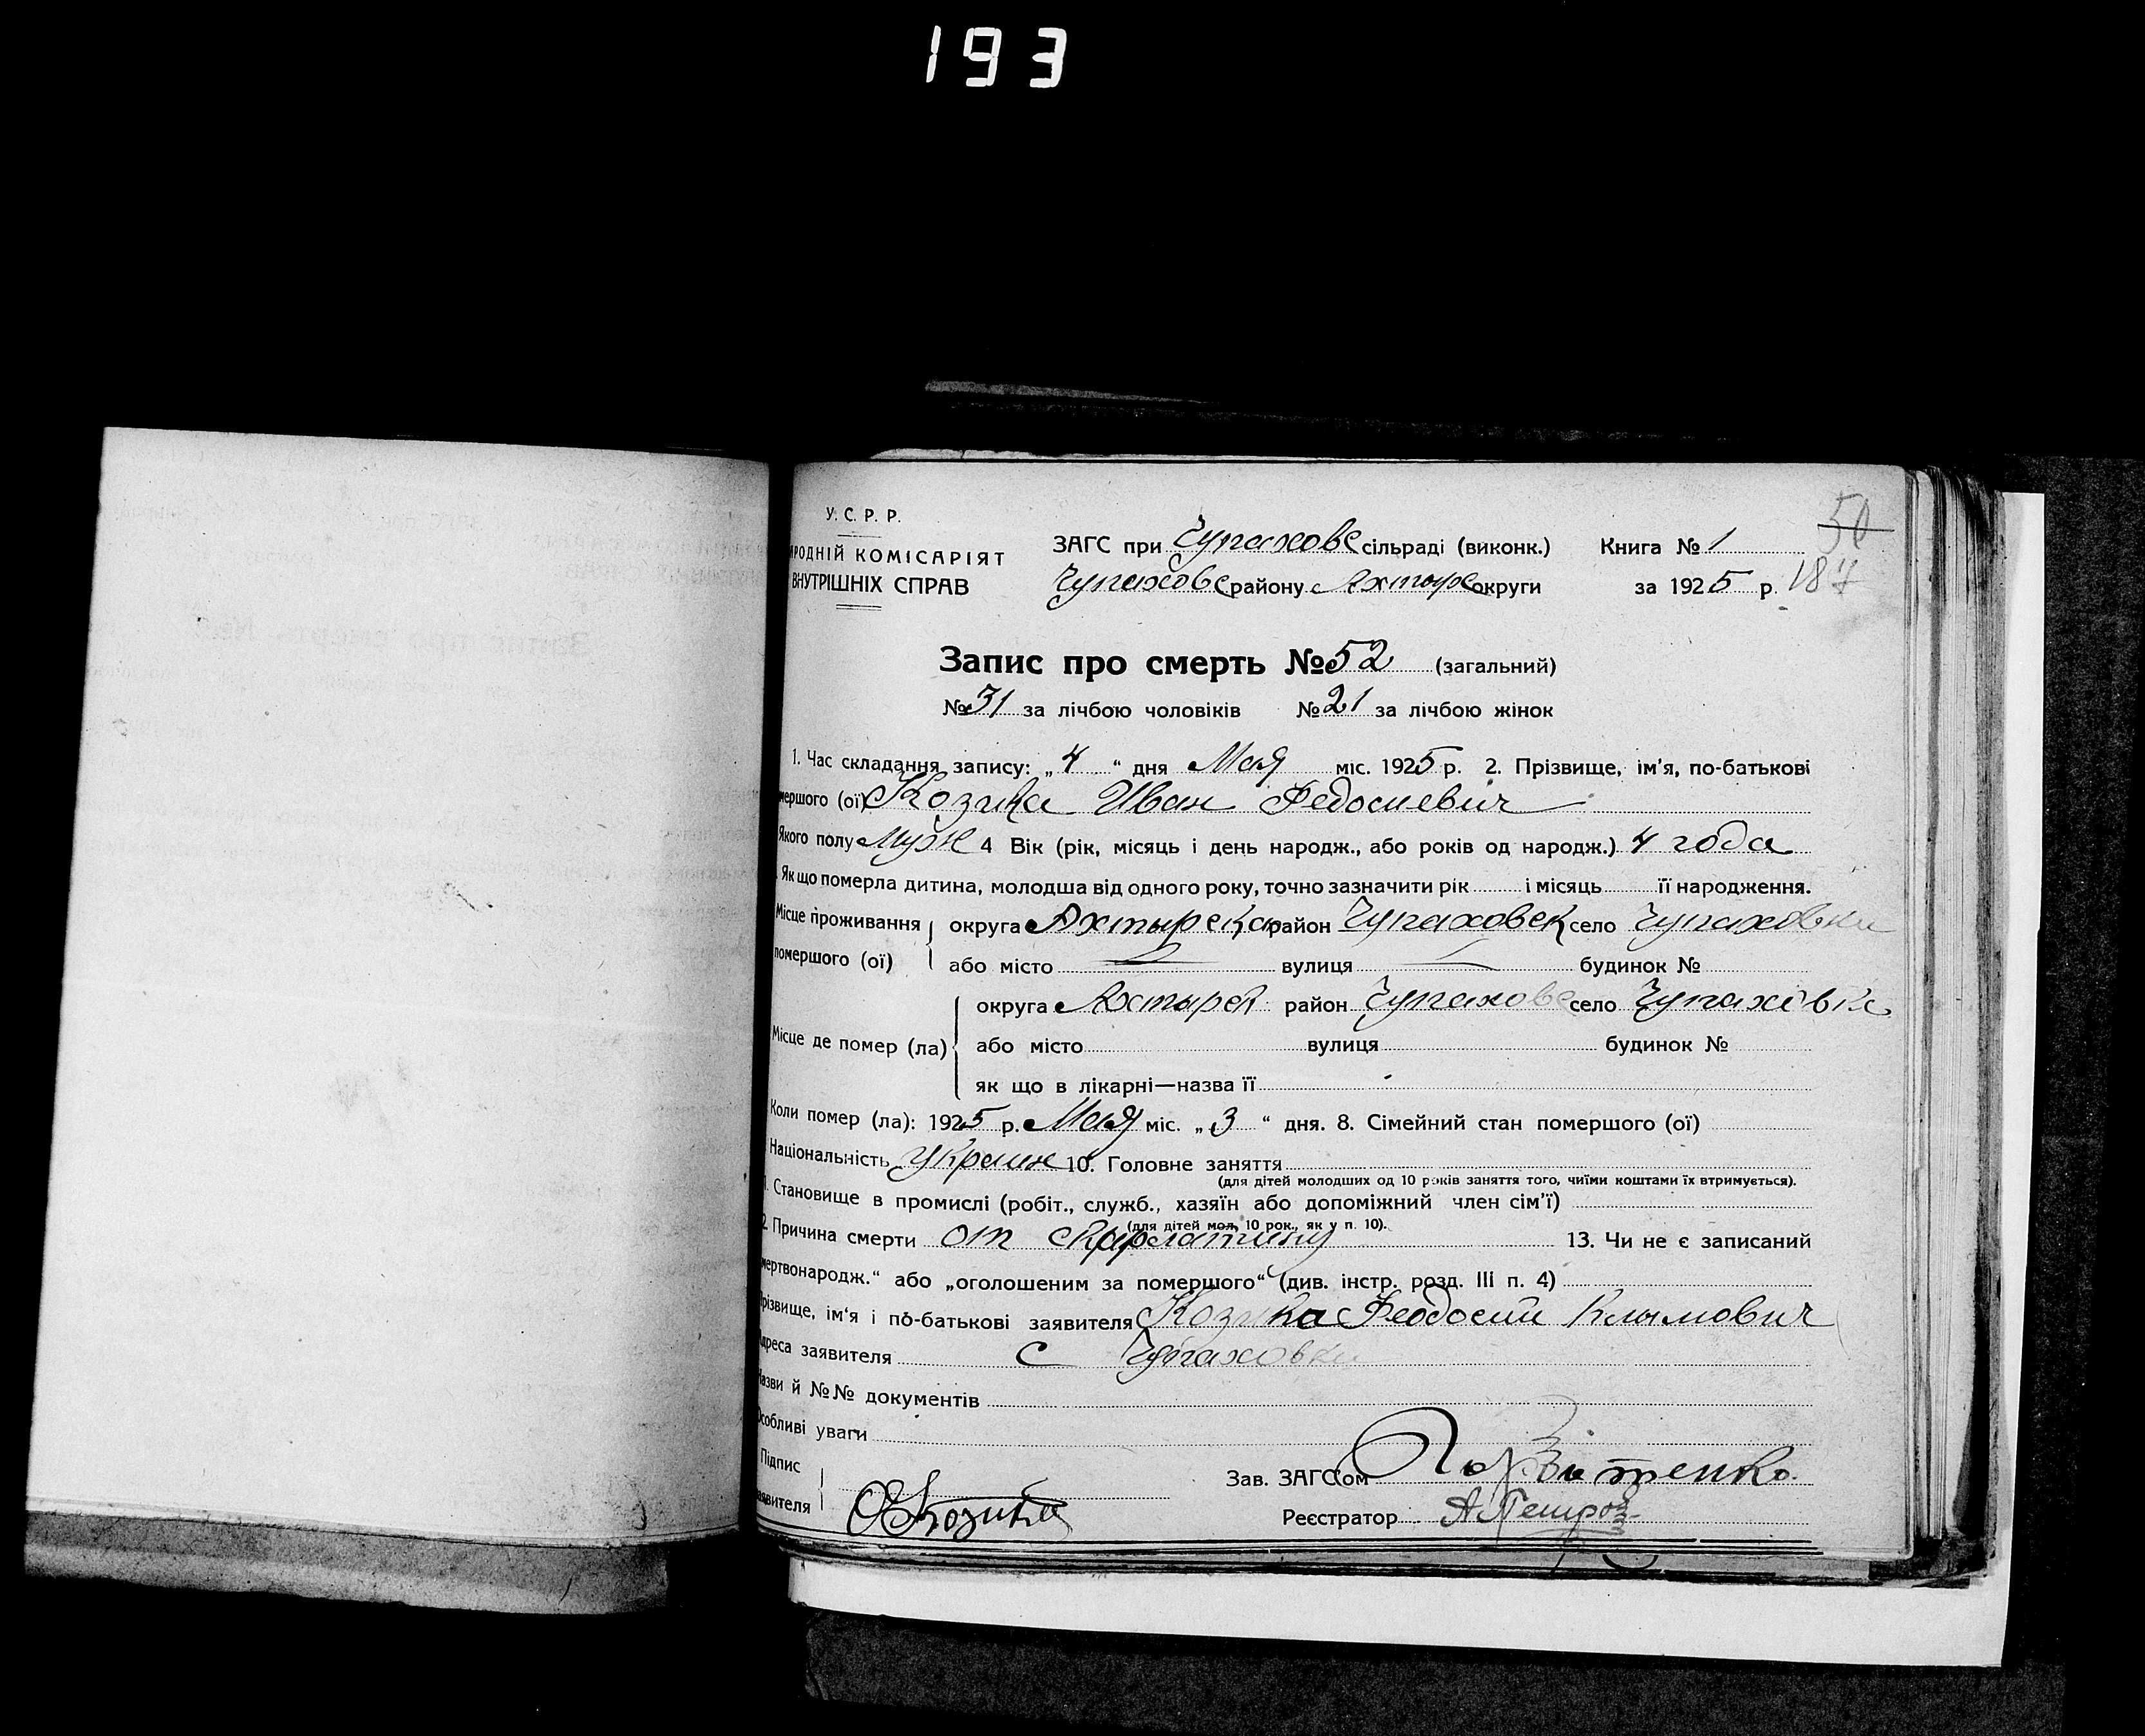 193
50
У. С. Р. Р.
РОДНІЙ КОМІСАРІЯТ
ВНУТРІШНІХ СПРАВ
ЗАГС при Чупахове сільраді (виконк.) Книга № 1
Чупахове району Ахтырс округи за 1925 р. 187
Запис про смерть № 52 (загальний)
№ 31 за лічбою чоловіків № 21 за лічбою жінок
1. Час складання запису: „ 4 “ дня Мая міс. 1925 р. 2. Прізвище, ім'я, по-батькові
мершого (ої) Козика Иван Федосиевич
Якого полу Муж 4 Вік (рік, місяць і день народж., або років од народж.) 4 года
Як що померла дитина, молодша від одного року, точно зазначити рік і місяць її народження.
Місце проживання округа Ахтырска район Чупаховск село Чупаховки
помершого (ої) або місто вулиця будинок №
округа Ахтырск район Чупахове село Чупаховке
Місце де помер (ла) або місто вулиця будинок №
як що в лікарні—назва її
Коли помер (ла): 1925 р. Мая міс. „ 3 “ дня. 8. Сімейний стан помершого (ої)
Національність Украин 10. Головне заняття
(для дітей молодших од 10 років заняття того, чиїми коштами їх втримується).
1. Становище в промислі (робіт., служб., хазяїн або допоміжний член сім'ї)
(для дітей мол. 10 рок., як у п. 10).
2. Причина смерти от скарлатину 13. Чи не є записаний
мертвонародж.“ або „оголошеним за помершого“ (див. інстр. розд. III п. 4)
різвище, ім'я і по-батькові заявителя Козика Феодосий Климович
дреса заявителя с Чупаховки
Назви й №№ документів
Особливі уваги
Підпис
аявителя Козика
Зав. ЗАГСом
Реєстратор А Петров